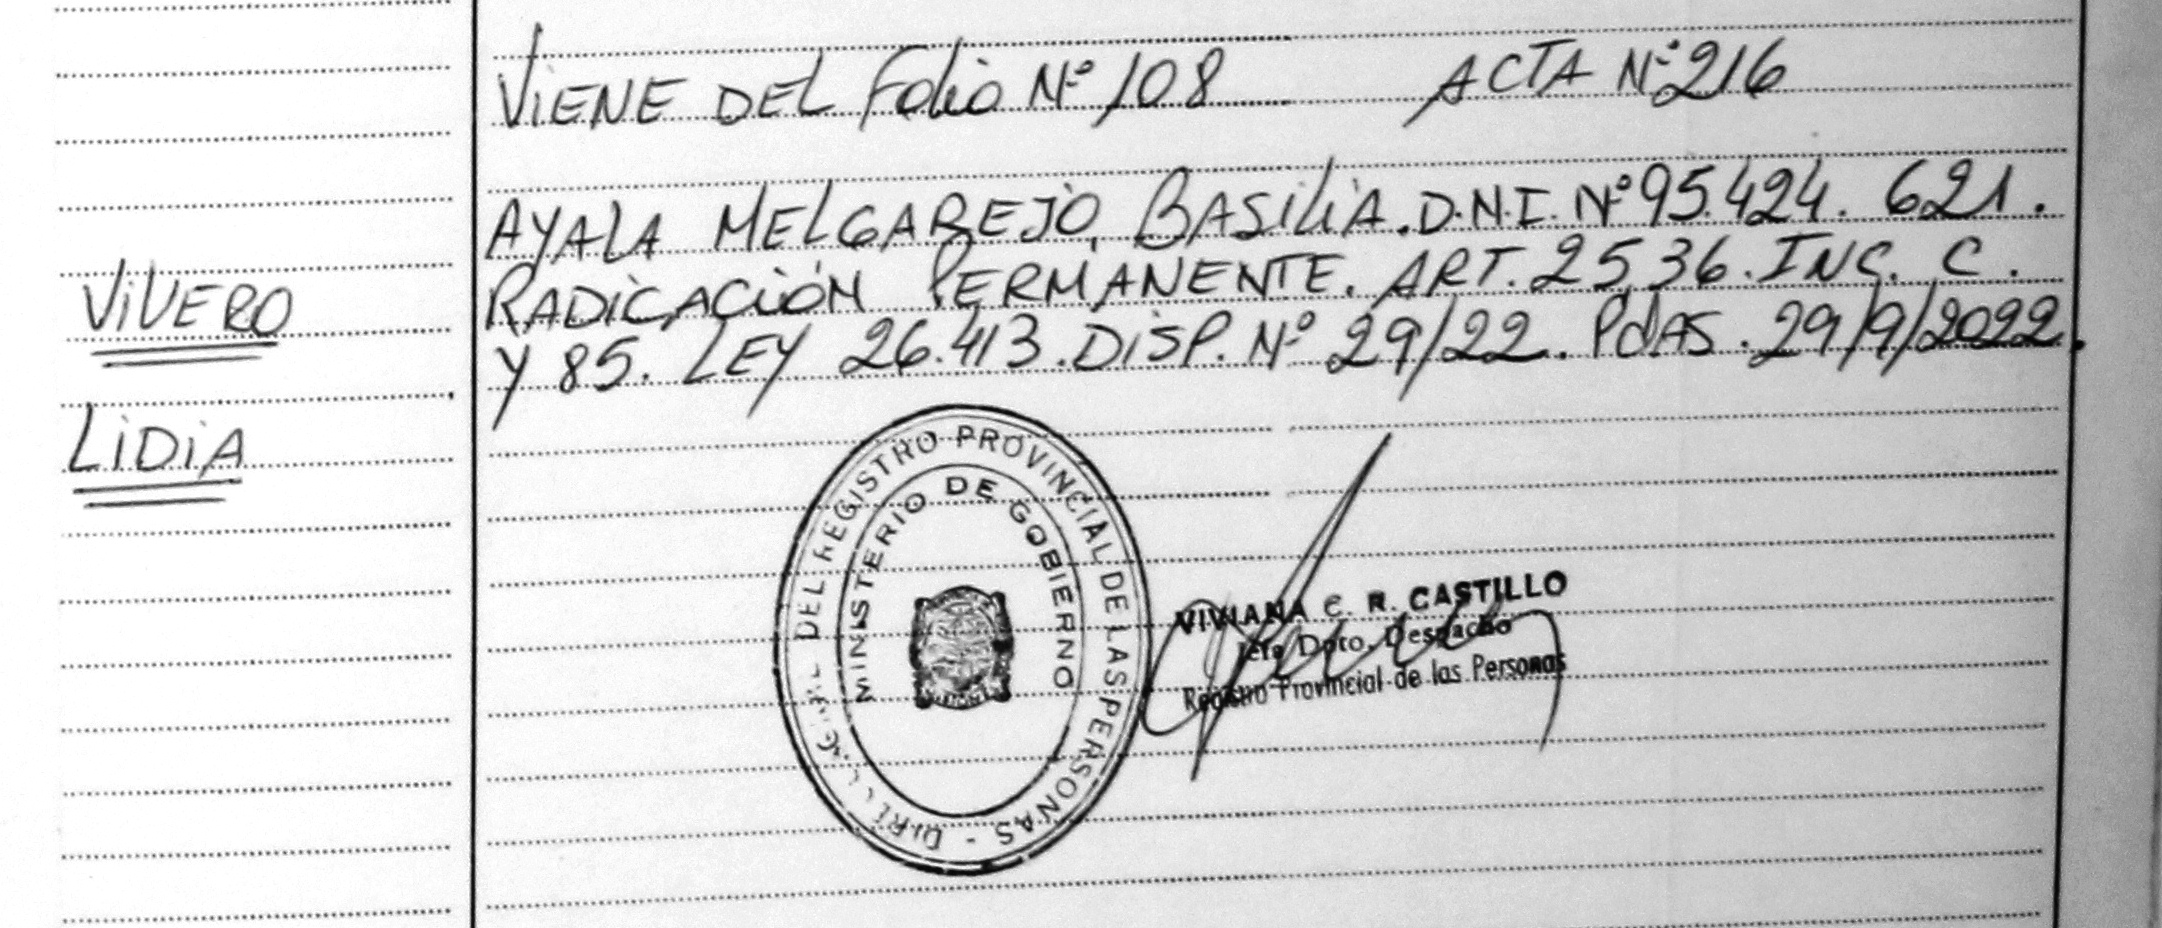 VIENE DEL Folio Nº 108 ACTA Nº 216
AYALA MELGAREJO, BASILIA. D.N.I. Nº 95.424.621.
RADICACIÓN PERMANENTE. ART. 25,36. INC. C.
Y 85. LEY 26.413. DISP. Nº 29/22. PdAS. 29/9/2022.
VIVERO
LIDIA
DEL REGISTRO PROVINCIAL DE LAS PERSONAS -
MINISTERIO DE GOBIERNO
VIVIANA C. R. CASTILLO
Jefe Dpto. Despacho
Registro Provincial de las Personas